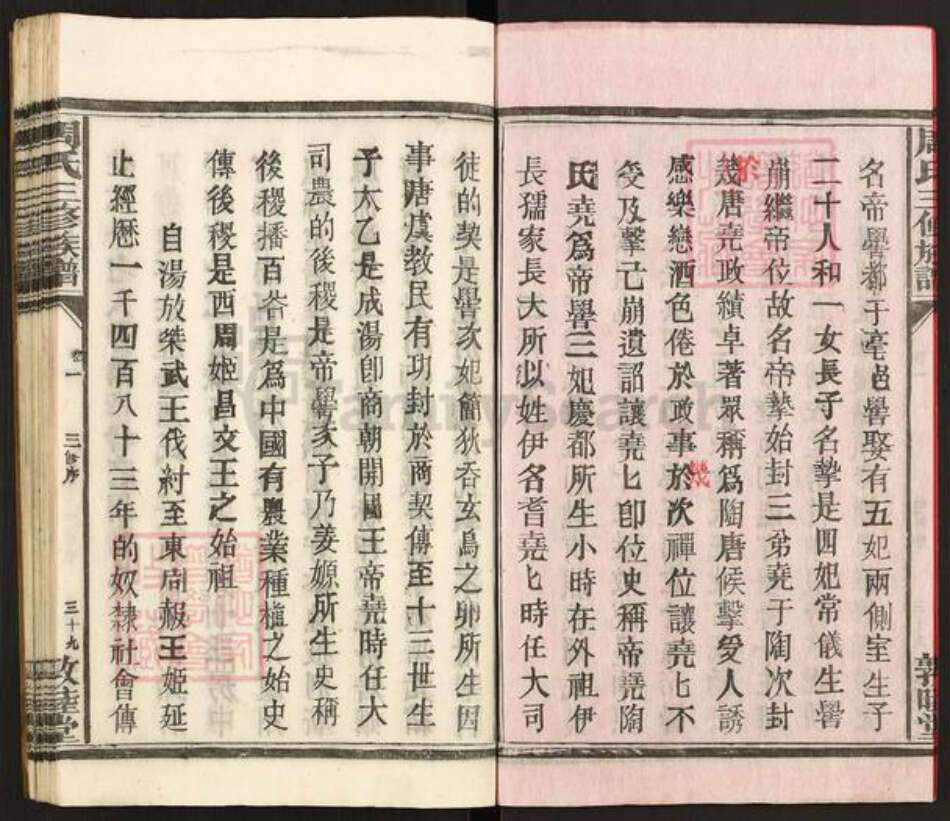 名帝嚳都于亳邑嚳娶有五妃兩側室生子
二十人和一女長子名摯是四妃常儀生嚳
崩繼帝位故名帝摯始封三弟堯于陶次封
於幾唐堯政績卓著眾稱爲陶唐候摯受人誘
感樂戀酒色倦於政事於次禪位讓堯匕不
幾
受及摯己崩遺詔讓堯匕卽位史稱帝堯陶
氏堯爲帝嚳三妃慶都所生小時在外祖伊
長孺家長大所以姓伊名耆堯匕時任大司
徒的契是嚳次妃簡狄吞玄鳥之卵所生因
事唐虞教民有功封於商契傳至十三世生
子太乙是成湯卽商朝開國王帝堯時任大
司農的後稷是帝嚳冢子乃姜嫄所生史稱
後稷播百谷是爲中國有農業種植之始史
傳後稷是西周姬昌文王之始祖
自湯放桀武王伐紂至東周赧王姬延
止經歷一千四百八十三年的奴隸社會傳
周氏三修族譜
卷一
三修序
三十九
敦睦堂
周氏三修族譜
敦睦堂
FamilySearch